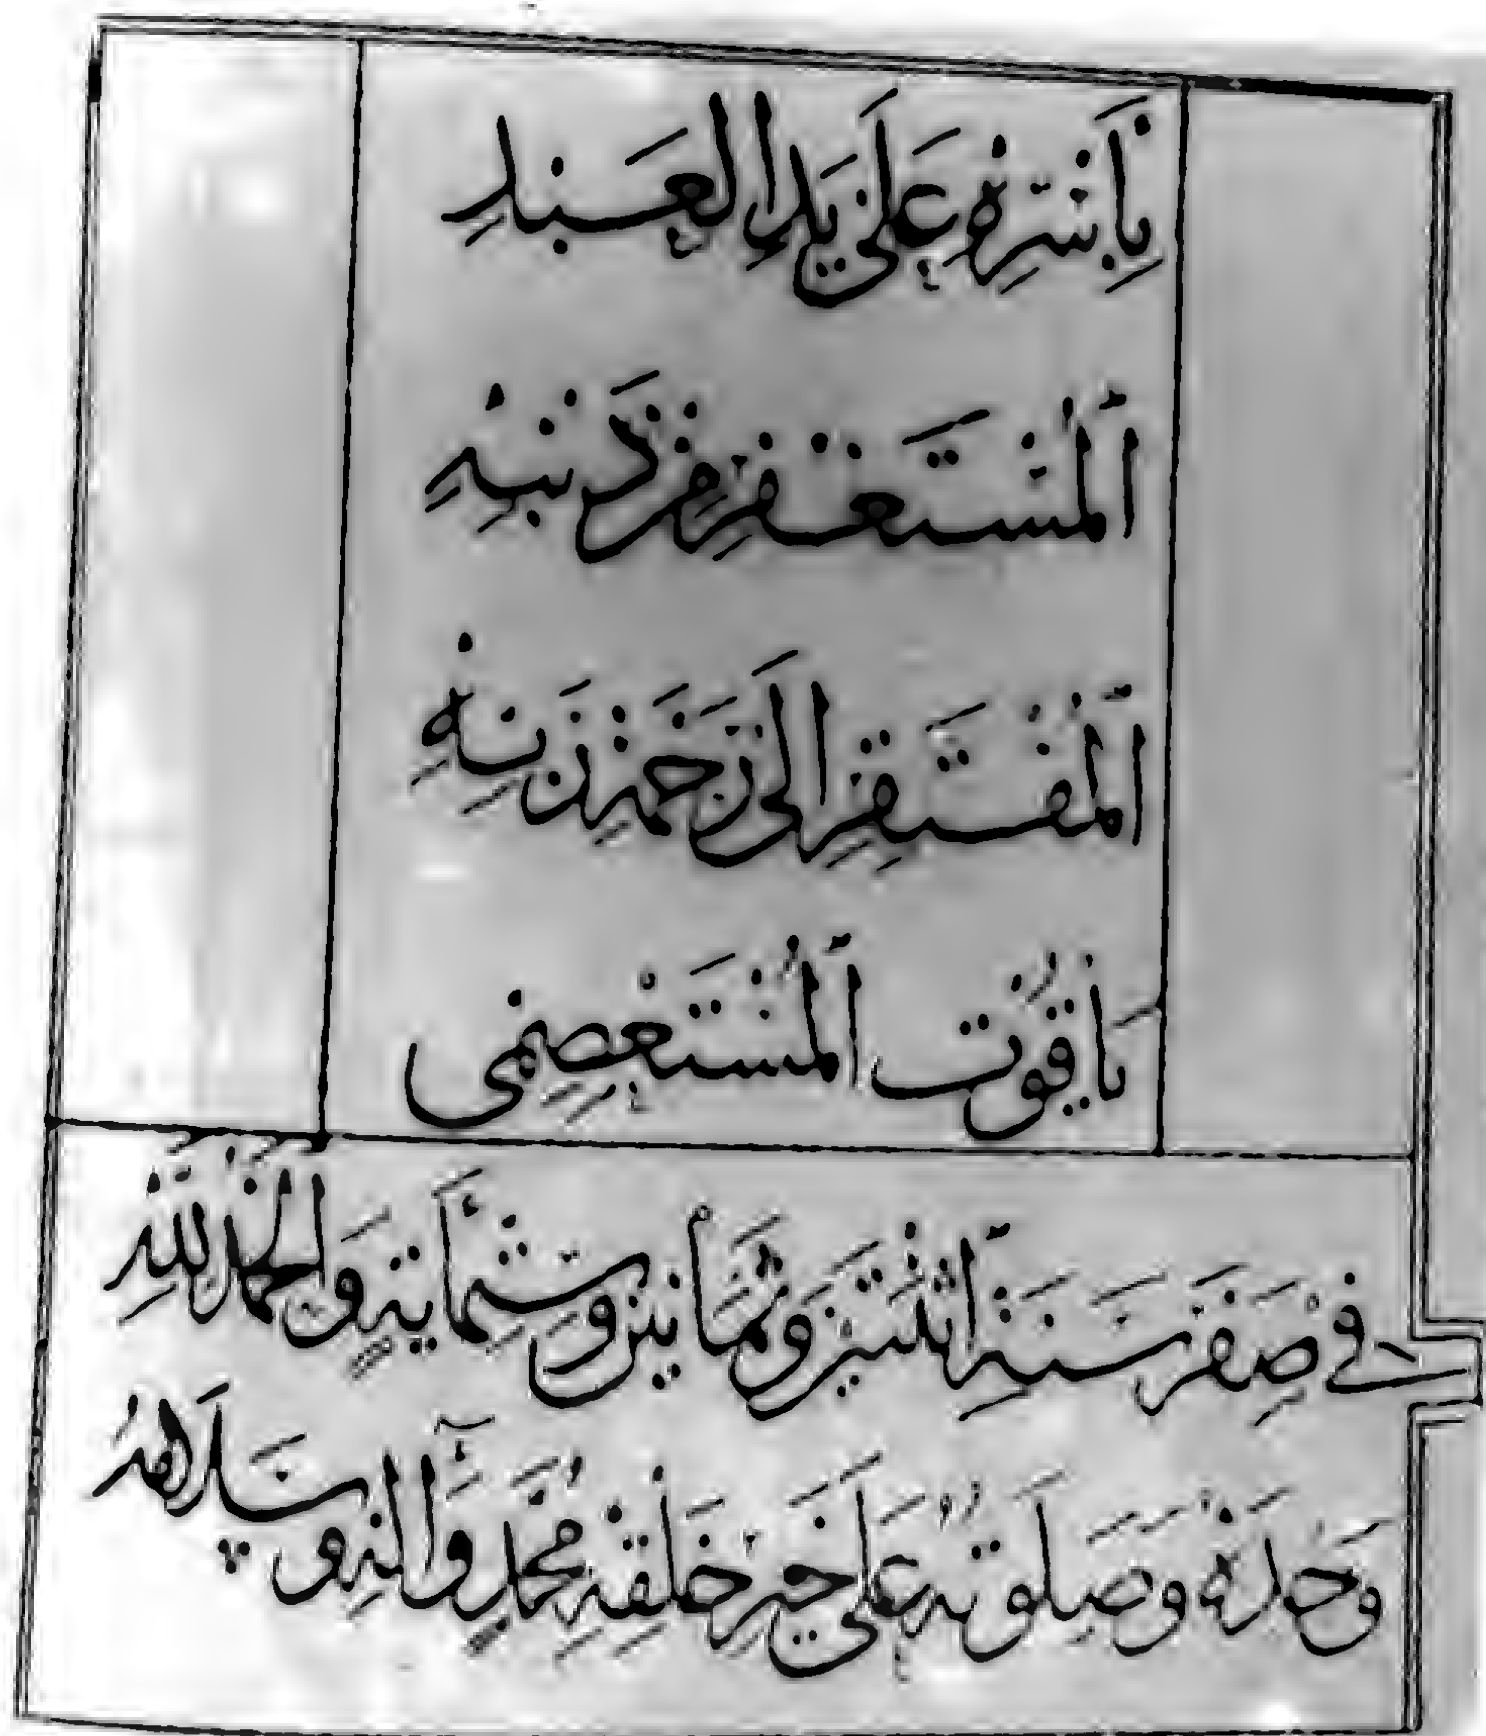 بِأَسْرِهِ عَلَى يَدِ الْعَبْدِ
اَلْمُسْتَغْفِرِ مِنْ ذَنْبِهِ
اَلْمُفْتَقِرِ إِلَى رَحْمَةِ رَبِّهِ
يَاقُوْت اَلْمُسْتَعْصِمِى
فِى صَفَرِ سَنَةِ اثْنَتَيْنِ وَثَمَانِيْنَ وَسِتِّمِائَةٍ وَالْحَمْدُ لِلّٰهِ
وَحْدَهُ وَصَلَوتُهُ عَلَى خَيْرِ خَلْقِهِ مُحَمَّدٍ وَآلِهِ وَسَلَامُهُ